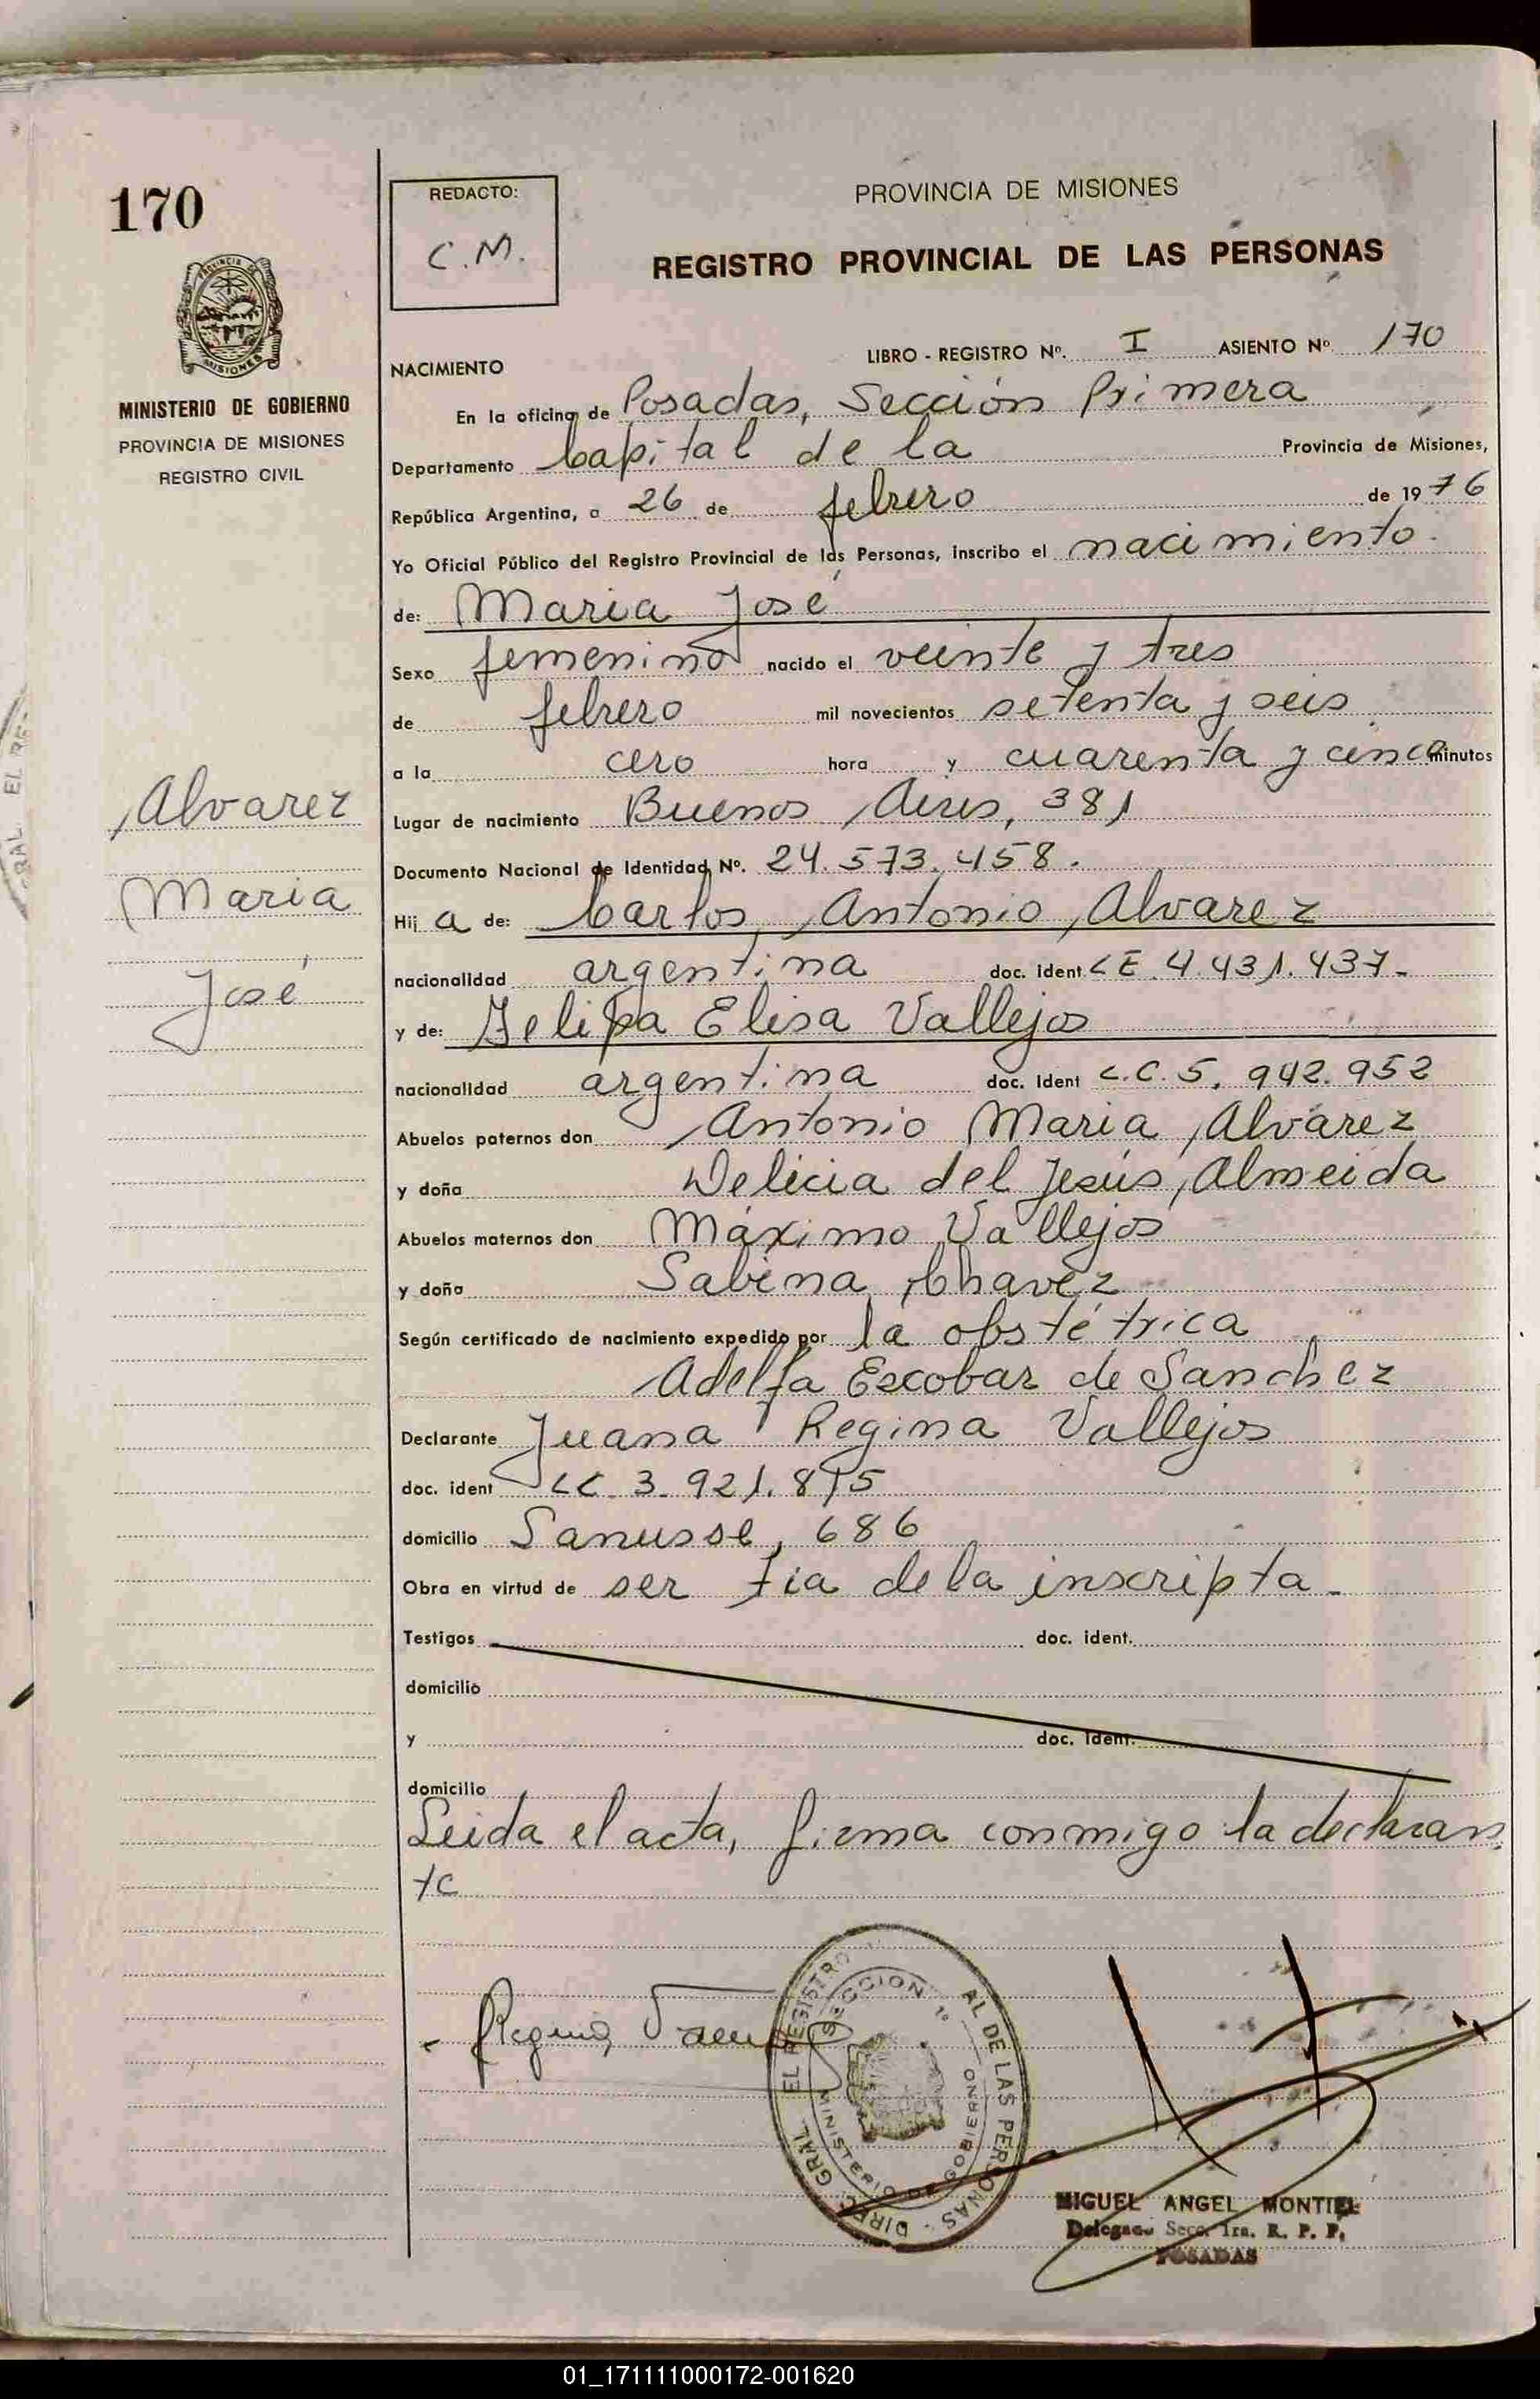 170
REDACTO:
C.M.
PROVINCIA DE MISIONES
REGISTRO PROVINCIAL DE LAS PERSONAS
PROVINCIA DE
MISIONES
MINISTERIO DE GOBIERNO
PROVINCIA DE MISIONES
REGISTRO CIVIL
LIBRO - REGISTRO Nº. I ASIENTO Nº 170
NACIMIENTO
En la oficina de Posadas, Sección Primera
Departamento Capital de la Provincia de Misiones,
República Argentina, a 26 de febrero de 1976
Yo Oficial Público del Registro Provincial de las Personas, inscribo el nacimiento
de: Maria José
Sexo femenino nacido el veinte y tres
de febrero mil novecientos setenta y seis
a la cero hora y cuarenta y cinco minutos
Alvarez
Maria
José
Lugar de nacimiento Buenos Aires, 381
Documento Nacional de Identidad Nº. 24.573.458.
Hij a de: Carlos Antonio Alvarez
nacionalidad argentina doc. ident LE 4.431.437-
y de: Felipa Elisa Vallejos
nacionalidad argentina doc. ident L.C. 5.942.952
Abuelos paternos don Antonio Maria Alvarez
y doña Delicia del Jesús Almeida
Abuelos maternos don Máximo Vallejos
y doña Sabina Chavez
Según certificado de nacimiento expedido por la obstétrica
Adelfa Escobar de Sanchez
Declarante Juana Regina Vallejos
doc. ident LC 3.921.815
domicilio Sanusse, 686
Obra en virtud de ser tia de la inscripta-
Testigos doc. ident.
domicilio
y doc. ident.
domicilio
Leida el acta, firma conmigo la declaran
te
Regina
SECCION 1º
MINISTERIO DE GOBIERNO
AL DE LAS PERSONAS - DIREC. GRAL. EL REGISTRO
MIGUEL ANGEL MONTIEL
Delegado Secc. 1ra. R. P. P.
POSADAS
01_171111000172-001620